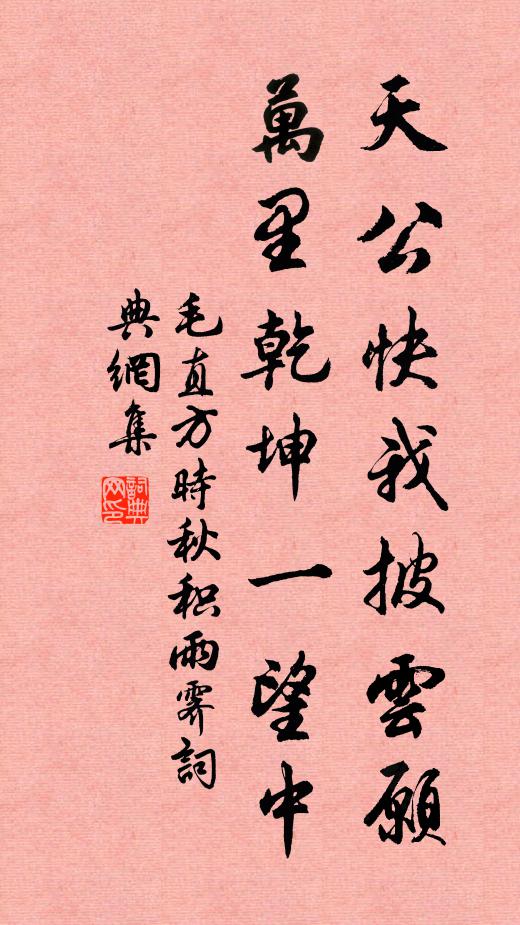 天公快我披雲願
萬里乾坤一望中
毛直方時秋积雨霽詞
典網集
詞典网印